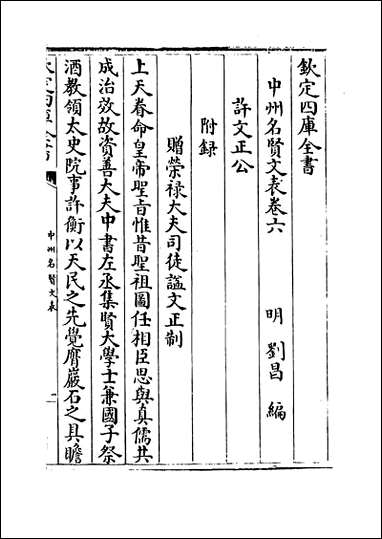 欽定四庫全書
中州名賢文表卷六
明 劉昌 編
許文正公
附録
贈榮禄大夫司徒諡文正制
上天眷命皇帝聖旨惟昔聖祖圖任相臣思與真儒共
成治效故資善大夫中書左丞集賢大學士兼國子祭
酒教領太史院事許衡以天民之先覺膺巖石之具瞻
中州名賢文表
一